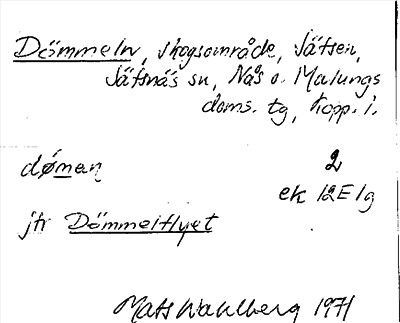 Dömmeln, skogsområde, Sätsen,
Säfsnäs sn, Nås o. Malungs
doms. tg, Kopp. l.
dømeņ 2
ek 12E1g
jfr Dömmelflyet
Mats Wahlberg 1971